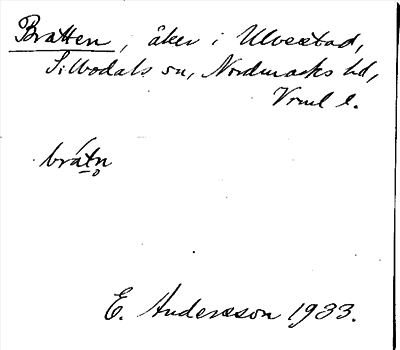 Bratten, åker i Ulvestad,
Silbodals sn, Nordmarks hd,
Vrml l.
brátn̥
E. Andersson 1933.